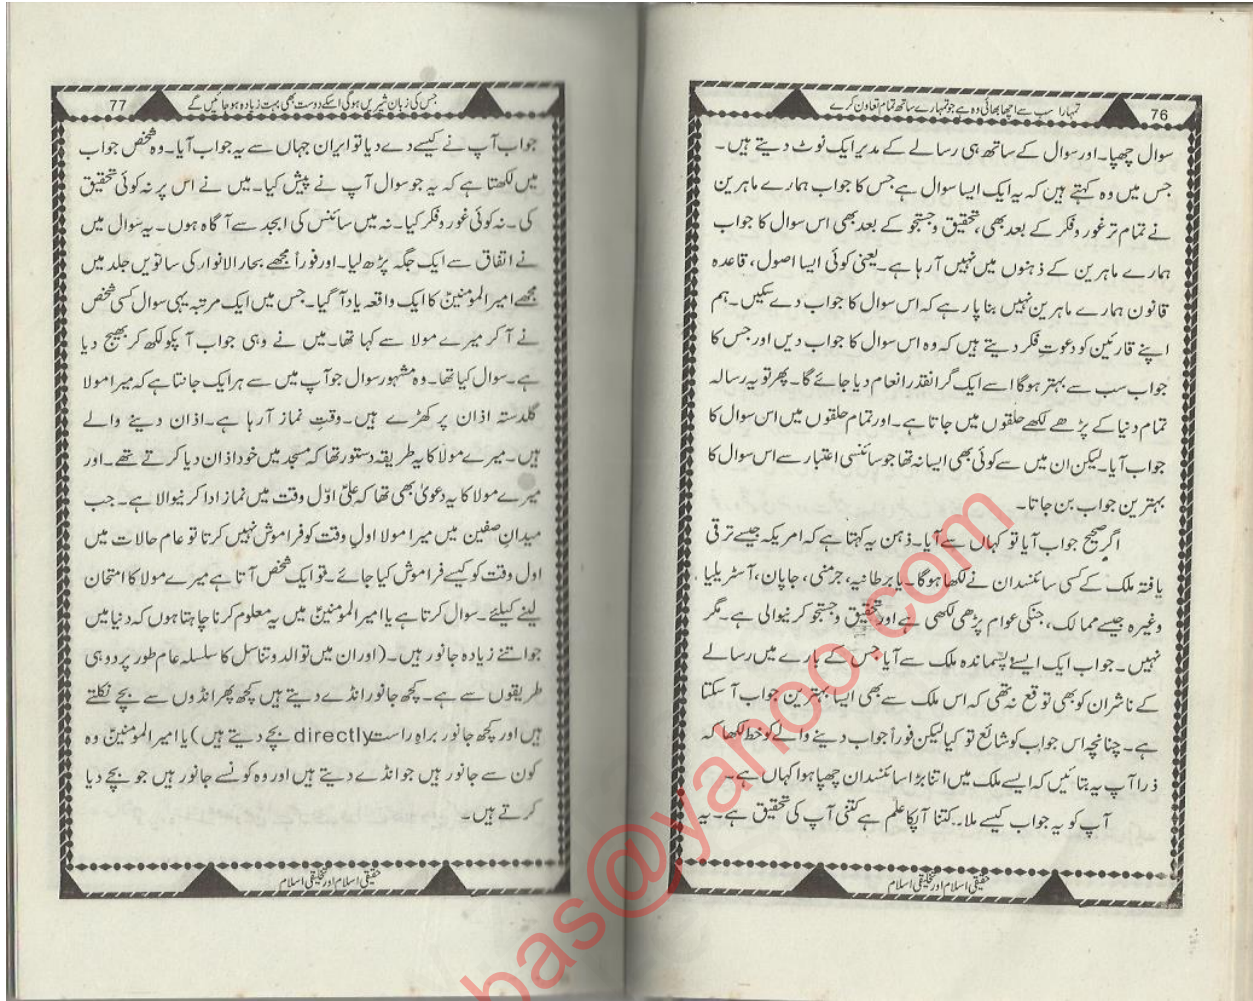 76
تمہارا سب سے اچھا بھائی وہ ہے جو تمہارے ساتھ تمام تعاون کرے
سوال چھپا۔ اور سوال کے ساتھ ہی رسالے کے مدیر ایک نوٹ دیتے ہیں۔
جس میں وہ کہتے ہیں کہ یہ ایک ایسا سوال ہے جس کا جواب ہمارے ماہرین
نے تمام تر غور و فکر کے بعد بھی، تحقیق و جستجو کے بعد بھی اس سوال کا جواب
ہمارے ماہرین کے ذہنوں میں نہیں آرہا ہے۔ یعنی کوئی ایسا اصول، قاعدہ
قانون ہمارے ماہرین نہیں بنا پا رہے کہ اس سوال کا جواب دے سکیں۔ ہم
اپنے قارئین کو دعوتِ فکر دیتے ہیں کہ وہ اس سوال کا جواب دیں اور جس کا
جواب سب سے بہتر ہوگا اسے ایک گرانقدر انعام دیا جائے گا۔ پھر تو یہ رسالہ
تمام دنیا کے پڑھے لکھے حلقوں میں جاتا ہے۔ اور تمام حلقوں میں اس سوال کا
جواب آیا۔ لیکن ان میں سے کوئی بھی ایسا نہ تھا جو سائنسی اعتبار سے اس سوال کا
بہترین جواب بن جاتا۔
اگر صحیح جواب آیا تو کہاں سے آیا۔ ذہن یہ کہتا ہے کہ امریکہ جیسے ترقی
یافتہ ملک کے کسی سائنسدان نے لکھا ہوگا۔ یا برطانیہ، جرمنی، جاپان، آسٹریلیا
وغیرہ جیسے ممالک، جنکی عوام پڑھی لکھی ہے اور تحقیق و جستجو کرنیوالی ہے۔ مگر
نہیں۔ جواب ایک ایسے پسماندہ ملک سے آیا جس کے بارے میں رسالے
کے ناشران کو بھی توقع نہ تھی کہ اس ملک سے بھی ایسا بہترین جواب آ سکتا
ہے۔ چنانچہ اس جواب کو شائع تو کیا لیکن فوراً جواب دینے والے کو خط لکھا کہ
ذرا آپ یہ بتائیں کہ ایسے ملک میں اتنا بڑا سائنسدان چھپا ہوا کہاں ہے۔
آپ کو یہ جواب کیسے ملا۔ کتنا آپکا علم ہے کتنی آپ کی تحقیق ہے۔ یہ
حقیقی اسلام اور تخلیقی اسلام
77
جس کی زبان شیریں ہوگی اسکے دوست بھی بہت زیادہ ہو جائیں گے
جواب آپ نے کیسے دے دیا تو ایران جہاں سے یہ جواب آیا۔ وہ شخص جواب
میں لکھتا ہے کہ یہ جو سوال آپ نے پیش کیا۔ میں نے اس پر نہ کوئی تحقیق
کی۔ نہ کوئی غور و فکر کیا۔ نہ میں سائنس کی ابجد سے آگاہ ہوں۔ یہ سوال میں
نے اتفاق سے ایک جگہ پڑھ لیا۔ اور فوراً مجھے بحار الانوار کی ساتویں جلد میں
مجھے امیر المومنینؑ کا ایک واقعہ یاد آ گیا۔ جس میں ایک مرتبہ یہی سوال کسی شخص
نے آ کر میرے مولا سے کہا تھا۔ میں نے وہی جواب آپکو لکھ کر بھیج دیا
ہے۔ سوال کیا تھا۔ وہ مشہور سوال جو آپ میں سے ہر ایک جانتا ہے کہ میرا مولا
گلدستہ اذان پر کھڑے ہیں۔ وقتِ نماز آرہا ہے۔ اذان دینے والے
ہیں۔ میرے مولا کا یہ طریقہ دستور تھا کہ مسجد میں خود اذان دیا کرتے تھے۔ اور
میرے مولا کا یہ دعویٰ بھی تھا کہ علیؑ اوّل وقت میں نماز ادا کرنیوالا ہے۔ جب
میدانِ صفین میں میرا مولا اولِ وقت کو فراموش نہیں کرتا تو عام حالات میں
اول وقت کو کیسے فراموش کیا جائے۔ تو ایک شخص آتا ہے میرے مولا کا امتحان
لینے کیلئے۔ سوال کرتا ہے یا امیر المومنینؑ میں یہ معلوم کرنا چاہتا ہوں کہ دنیا میں
جو اتنے زیادہ جانور ہیں۔ (اور ان میں توالد و تناسل کا سلسلہ عام طور پر دو ہی
طریقوں سے ہے۔ کچھ جانور انڈے دیتے ہیں کچھ پھر انڈوں سے بچے نکلتے
ہیں اور کچھ جانور براہِ راست directly بچے دیتے ہیں) یا امیر المومنینؑ وہ
کون سے جانور ہیں جو انڈے دیتے ہیں اور وہ کونسے جانور ہیں جو بچے دیا
کرتے ہیں۔
حقیقی اسلام اور تخلیقی اسلام
bas@yahoo.com